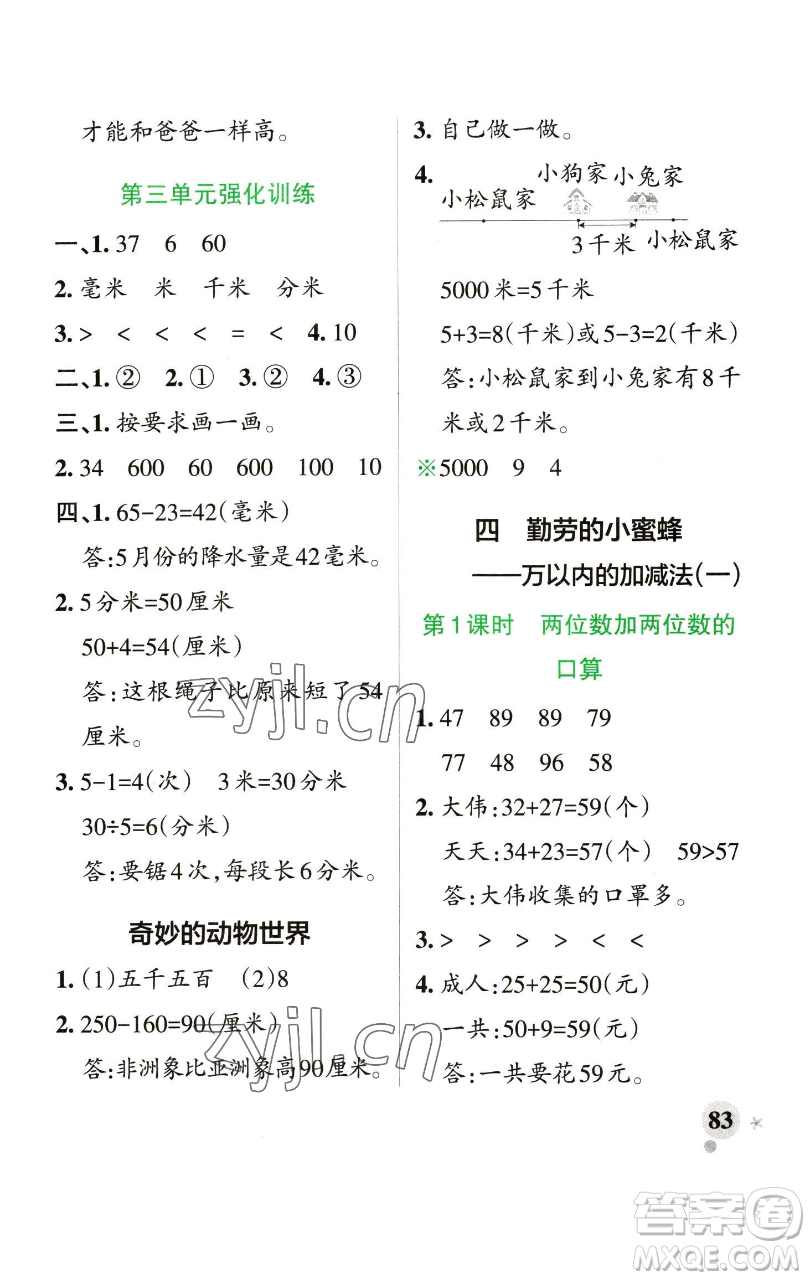 才能和爸爸一样高。
第三单元强化训练
一、1. 37 6 60
2. 毫米 米 千米 分米
3. > < < < = < 4. 10
二、1. ② 2. ① 3. ② 4. ③
三、1. 按要求画一画。
2. 34 600 60 600 100 10
四、1. 65-23=42(毫米)
答:5月份的降水量是42毫米。
2. 5分米=50厘米
50+4=54(厘米)
答:这根绳子比原来短了54
厘米。
3. 5-1=4(次) 3米=30分米
30÷5=6(分米)
答:要锯4次,每段长6分米。
奇妙的动物世界
1. (1)五千五百 (2)8
2. 250-160=90(厘米)
答:非洲象比亚洲象高90厘米。
3. 自己做一做。
4.
小狗家 小兔家
小松鼠家
3千米 小松鼠家
5000米=5千米
5+3=8(千米)或5-3=2(千米)
答:小松鼠家到小兔家有8千
米或2千米。
※5000 9 4
四 勤劳的小蜜蜂
——万以内的加减法(一)
第1课时 两位数加两位数的
口算
1. 47 89 89 79
77 48 96 58
2. 大伟:32+27=59(个)
天天:34+23=57(个) 59>57
答:大伟收集的口罩多。
3. > > > > < <
4. 成人:25+25=50(元)
一共:50+9=59(元)
答:一共要花59元。
83
zyjl.cn
zyjl.cn
答案卷
MXQE.COM